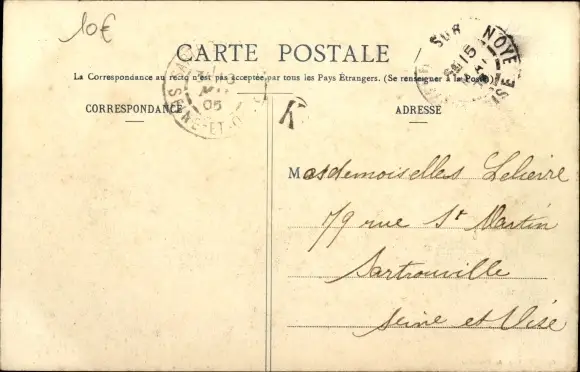 10€
CARTE POSTALE
La Correspondance au recto n'est pas acceptée par tous les Pays Étrangers. (Se renseigner à la Poste)
CORRESPONDANCE
ADRESSE
SUR NOYE
15
OISE
SEINE-ET-O
05
K
Masdemoiselles Lelierre
79 rue St Martin
Sartrouville
Seine et Oise